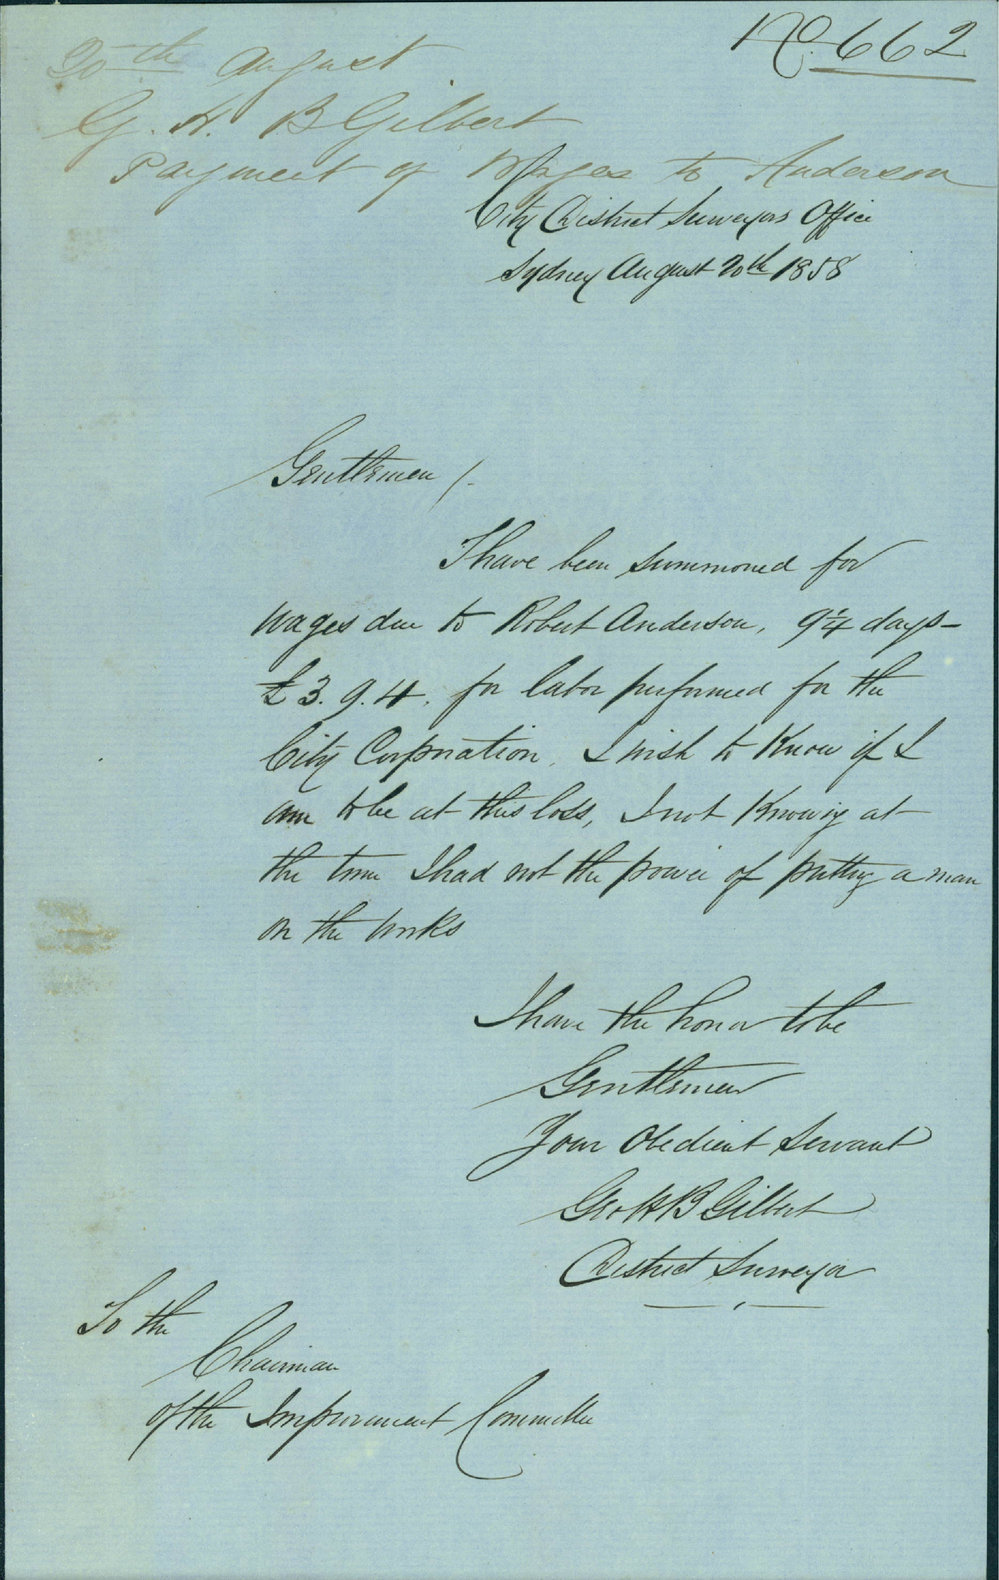 No. 662
20th August
G. H. B Gilbert
Payment of Wages to Anderson
City District Surveyors Office
Sydney August 20th 1858
Gentlemen /.
I have been summoned for
wages due to Robert Anderson, 9 1/4 days –
£3. 9. 4. for labor performed for the
City Corporation. I wish to know if I
am to be at this loss, I not knowing at
the time I had not the power of putting a man
on the works
I have the honor to be
Gentlemen
Your Obedient Servant
Geo H B Gilbert
District Surveyor
To the
Chairman
of the Improvement Committee